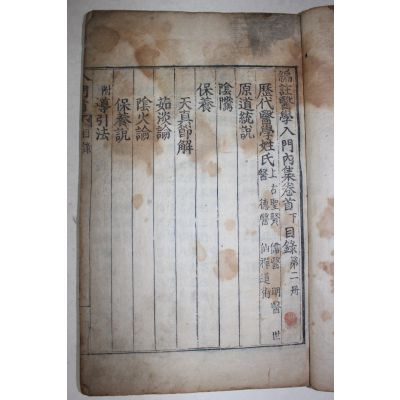 編註醫學入門內集卷首下目錄 第二冊
歷代醫學姓氏 上古聖賢 儒醫 明醫 世醫 德醫 仙禪道術
原道統說
陰隲
保養
天真節解
茹淡論
陰火論
保養說
附導引法
目錄